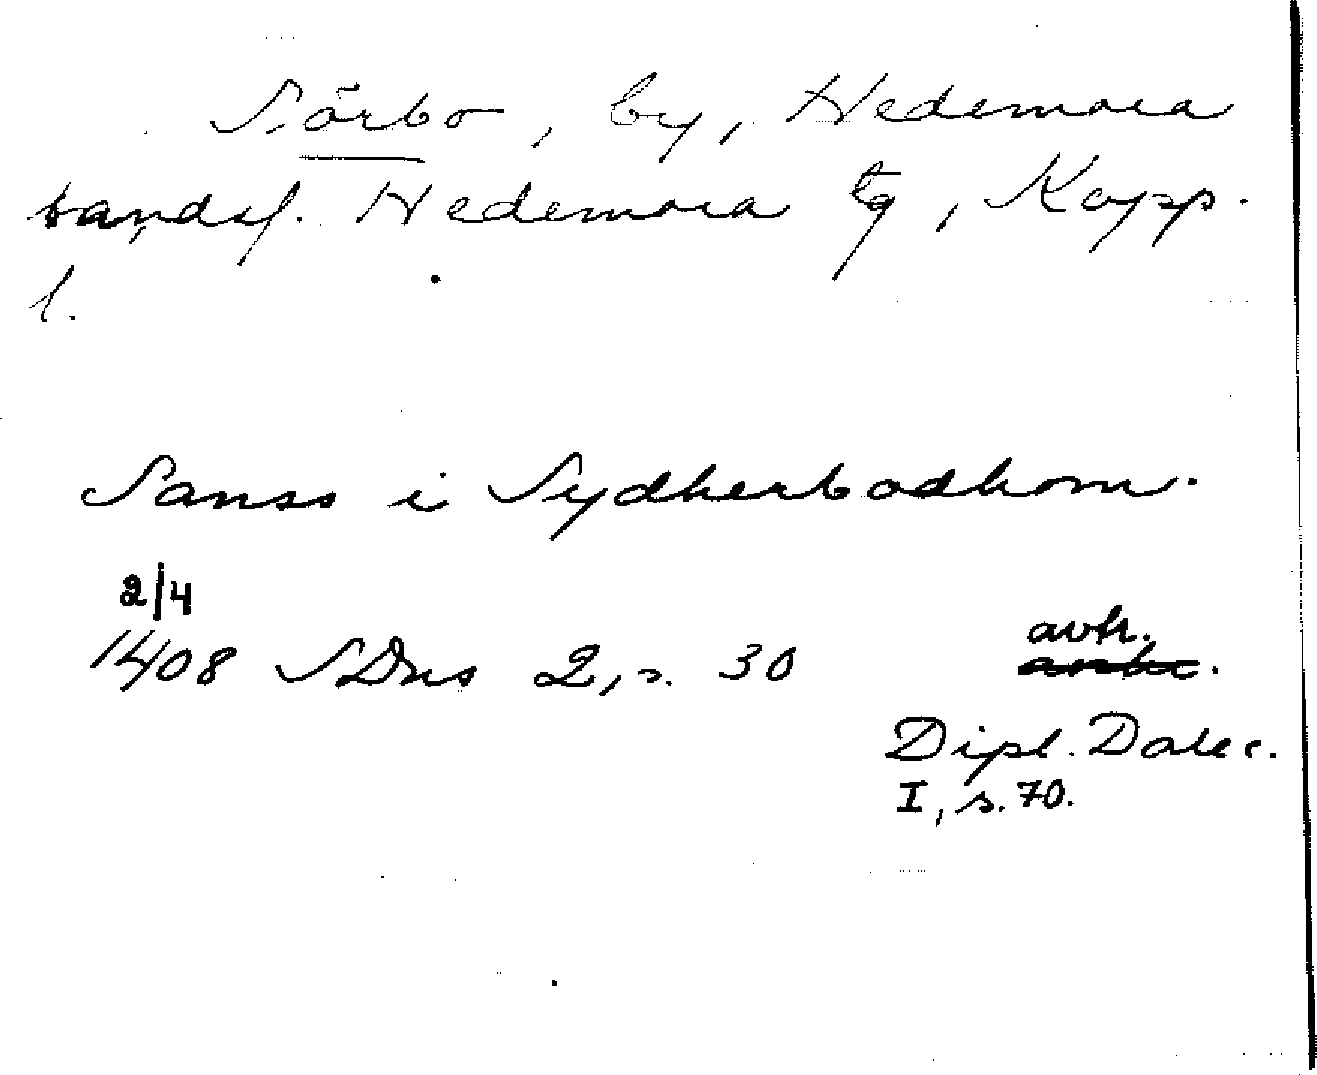 Sörbo, by, Hedemora
landsf. Hedemora tg, Kopp.
l.
Sanss i Sydherbodhom.
2/4
1408 SDns 2, s. 30
avtr.
Dipl. Dalec.
I, s. 70.